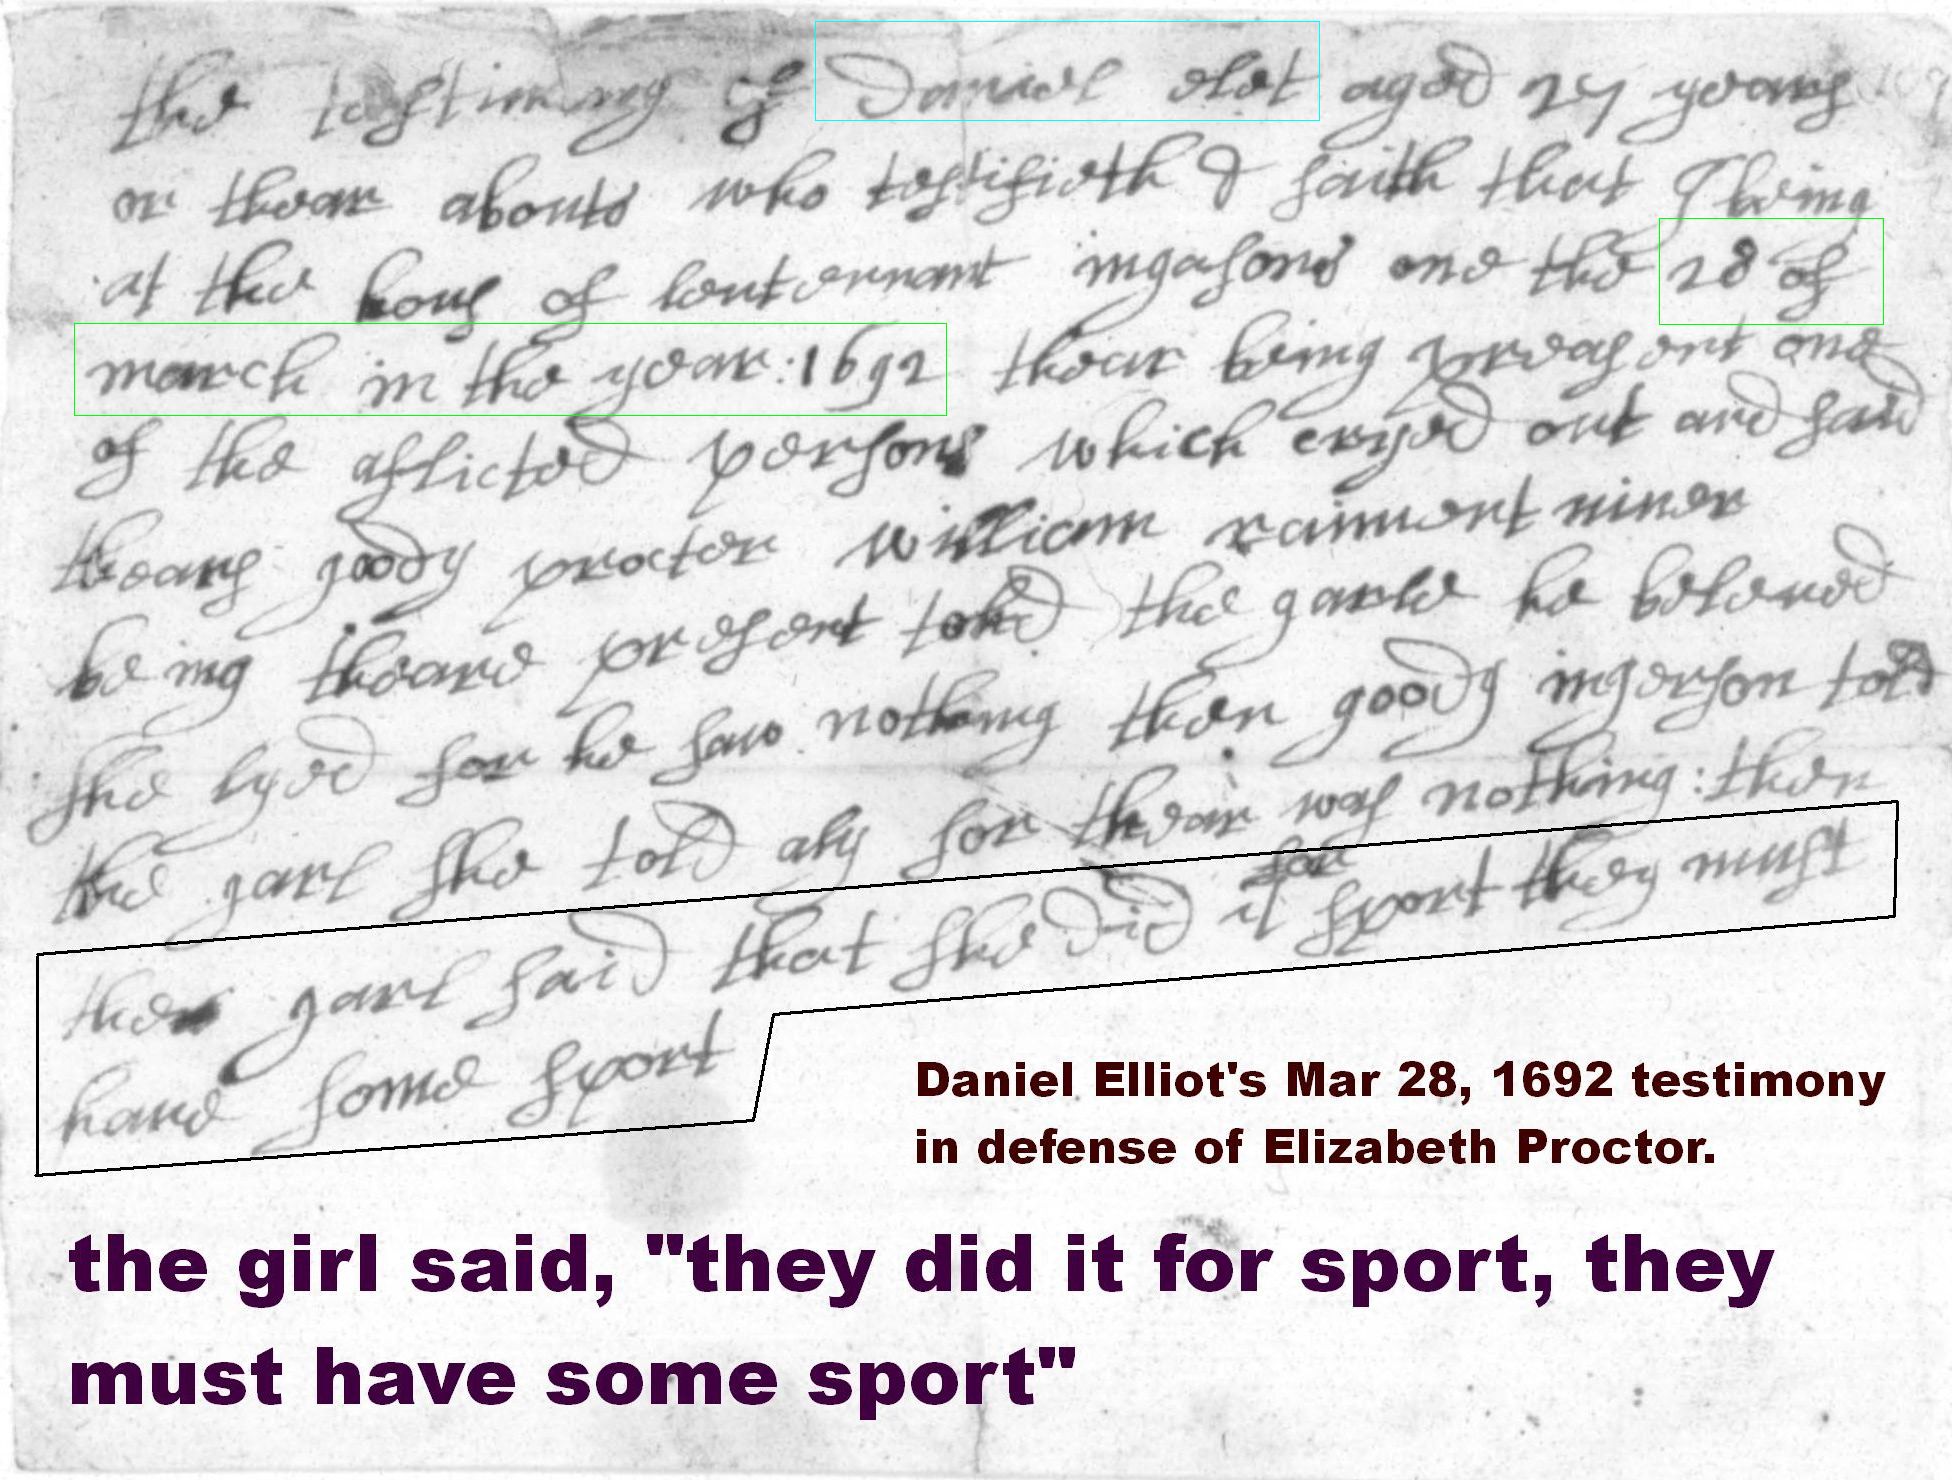 the testimony of Daniel elet aged 27 years
or thear abouts who testifieth & saith that I being
at the hous of leutennant ingasons one the 28 of
march in the year : 1692 thear being preasent one
of the aflicted persons which cryed out and said
thears goody procter william raiment niner
being theare present told the garle he beleved
she lyed for he saw nothing then goody ingerson told
the garl she told aly for thear was nothing : then
the garl said that she did it for sport they must
have some sport
Daniel Elliot's Mar 28, 1692 testimony
in defense of Elizabeth Proctor.
the girl said, "they did it for sport, they
must have some sport"